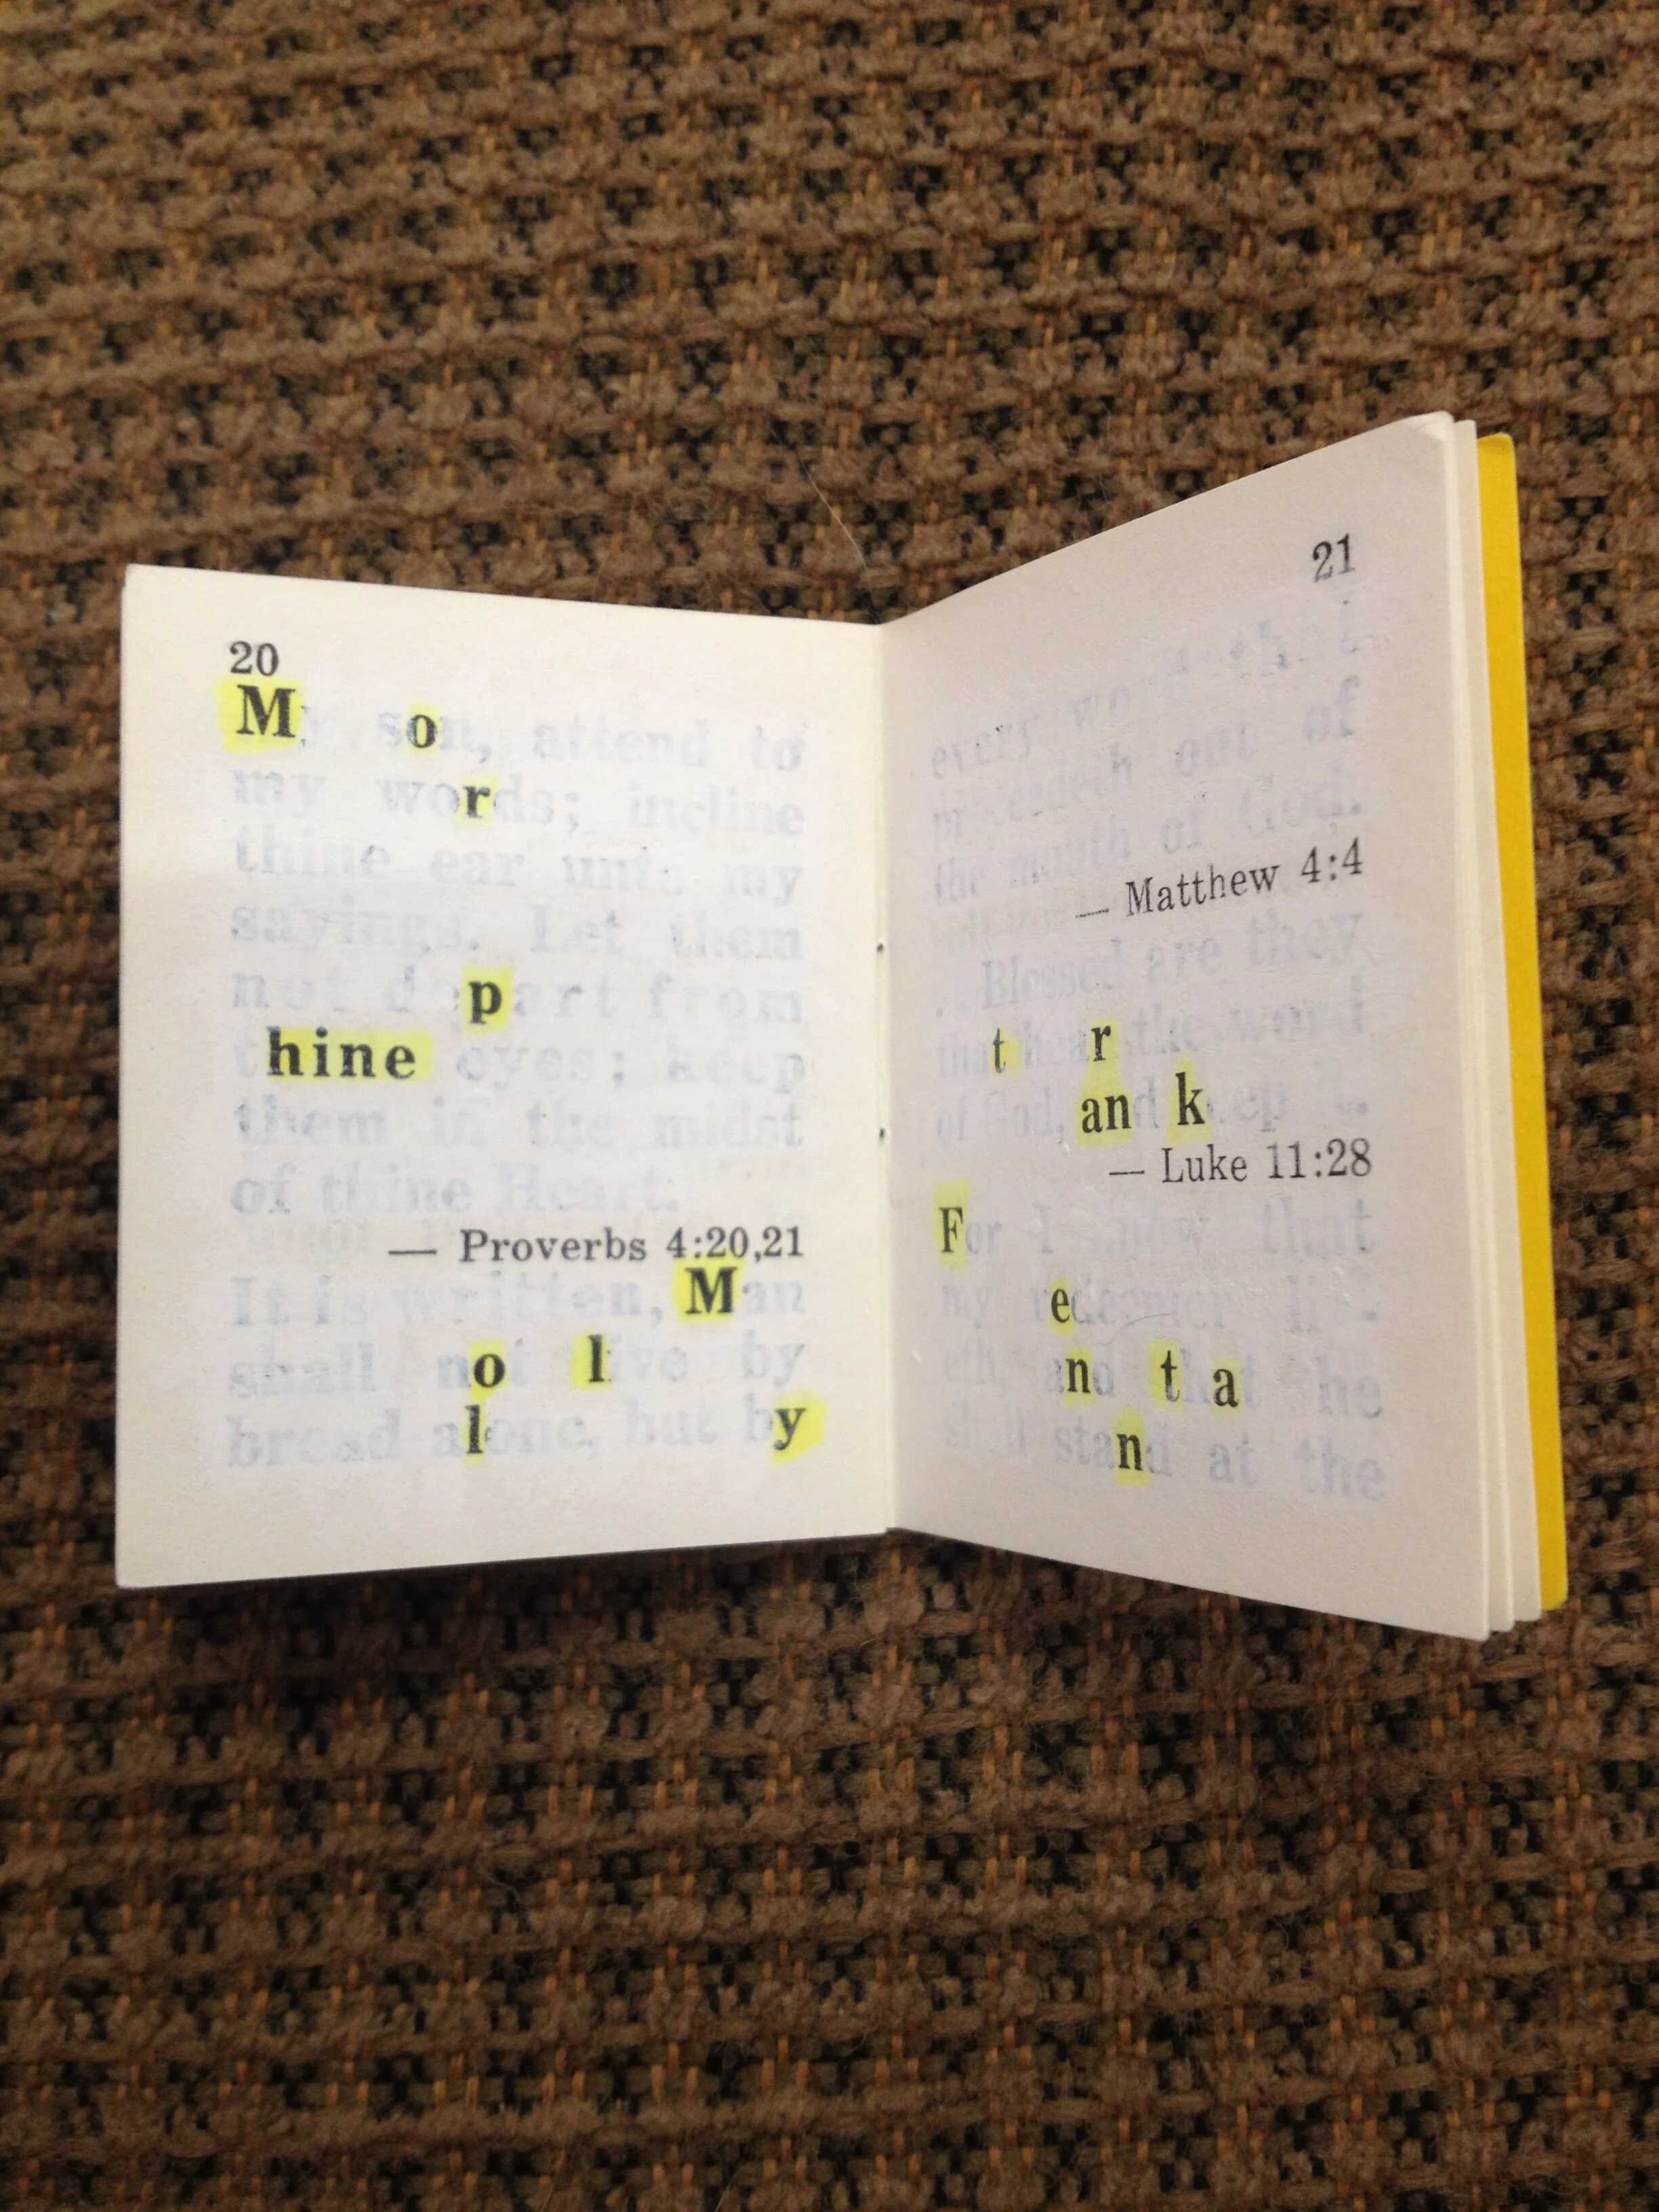 20
My son, attend to
my words; incline
thine ear unto my
sayings. Let them
not depart from
thine eyes; keep
them in the midst
of thine Heart.
— Proverbs 4:20,21
It is written, Man
shall not live by
bread alone, but by
21
every word that
proceedeth out of
the mouth of God.
— Matthew 4:4
. . Blessed are they
that hear the word
of God, and keep it.
— Luke 11:28
For I know that
my redeemer liv-
eth, and that he
shall stand at the